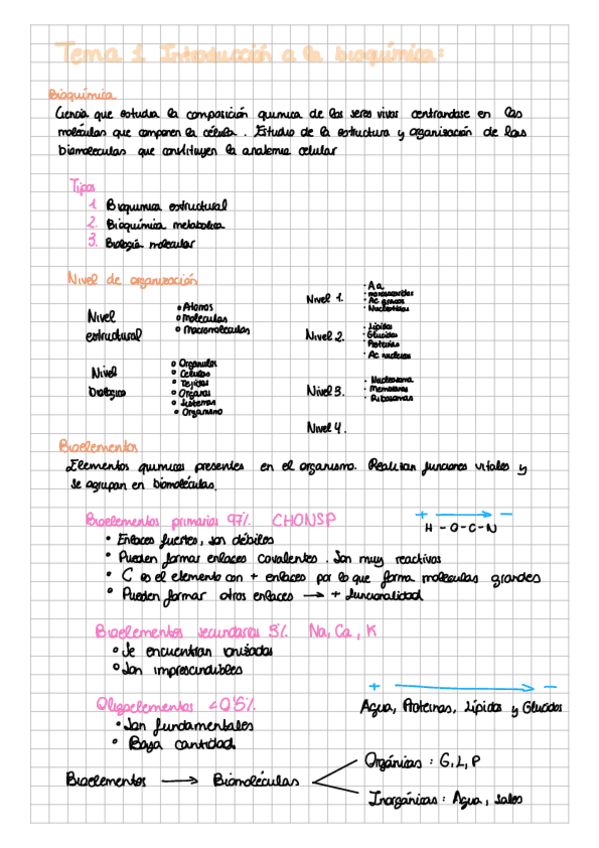 Tema 1 Introducción a la bioquímica:
Bioquímica
Ciencia que estudia la composición química de los seres vivos centrandose en las
moléculas que componen la célula. Estudio de la estructura y organización de las
biomoleculas que constituyen la anatomia celular
Tipos
1. Bioquimica estructural
2. Bioquímica metabolica
3. Biología molecular
Nivel de organización
Nivel estructural
• Atomos
• Moleculas
• Macromoleculas
Nivel biologico
• Organulos
• Celulas
• Tejidos
• Organos
• Sistemas
• Organismo
Nivel 1.
· Aa
· monosacaridos
· Ac grasos
· Nucleotidos
Nivel 2.
· Lipidos
· Glucidos
· Proteinas
· Ac nucleicos
Nivel 3.
· Nucleosoma
· Membrana
· Ribosomas
Nivel 4.
Bioelementos
Elementos quimicos presentes en el organismo. Realizan funciones vitales y
se agrupan en biomoléculas.
Bioelementos primarios 97%. CHONSP
+ → -
H - O - C - N
• Enlaces fuertes, son débiles
• Pueden formar enlaces covalentes. Son muy reactivos
• C es el elemento con + enlaces por lo que forma moleculas grandes
• Pueden formar otros enlaces → + funcionalidad
Bioelementos secundarios 3%. Na, Ca, K
• Se encuentran ionizados
• Son imprescindibles
Oligoelementos <0'5%
+ → -
Agua, Proteinas, Lípidos y Glucidos
• Son fundamentales
• Baja cantidad
Bioelementos → Biomoléculas
Orgánicas: G, L, P
Inorgánicas: Agua, sales